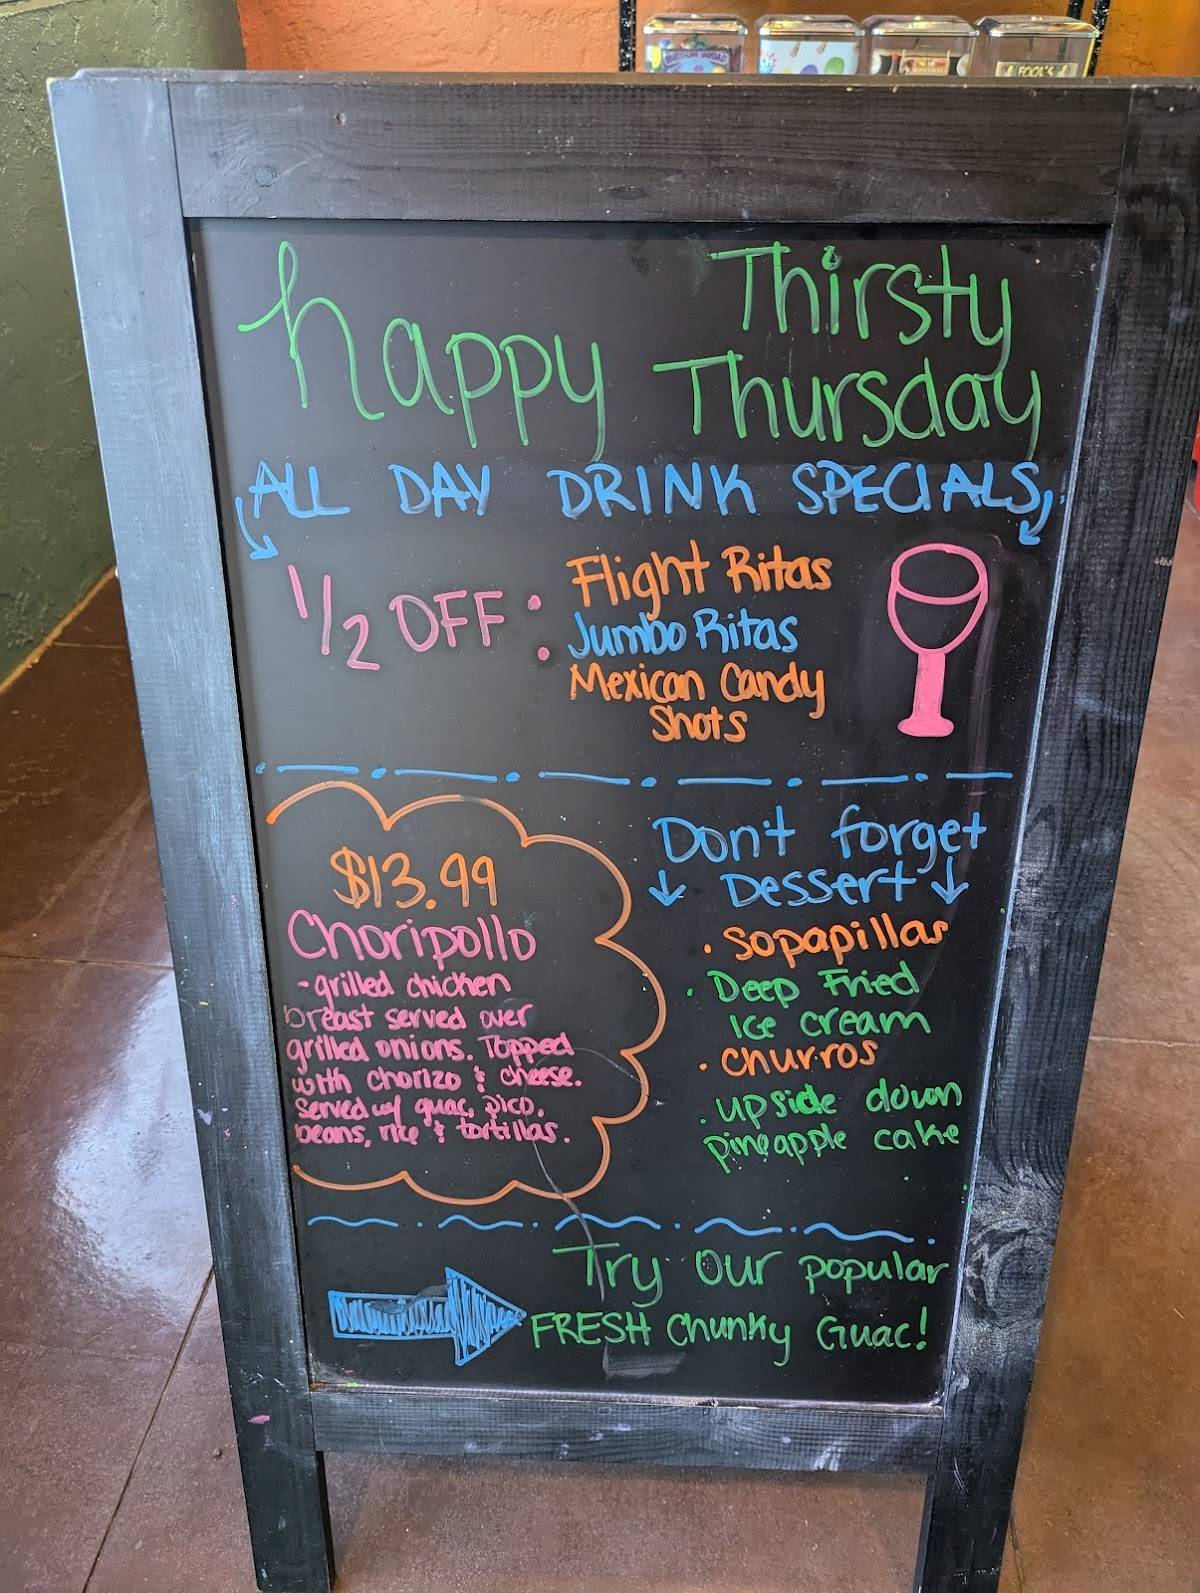 happy Thirsty
Thursday
ALL DAY DRINK SPECIALS
1/2 OFF:
Flight Ritas
Jumbo Ritas
Mexican Candy
Shots
$13.99
Choripollo
- grilled chicken
breast served over
grilled onions. Topped
with chorizo & cheese.
served w/ guac, pico,
beans, rice & tortillas.
Don't forget
Dessert
· sopapillas
· Deep Fried
Ice cream
· churros
· upside down
pineapple cake
Try our popular
FRESH Chunky Guac!
FOOL'S